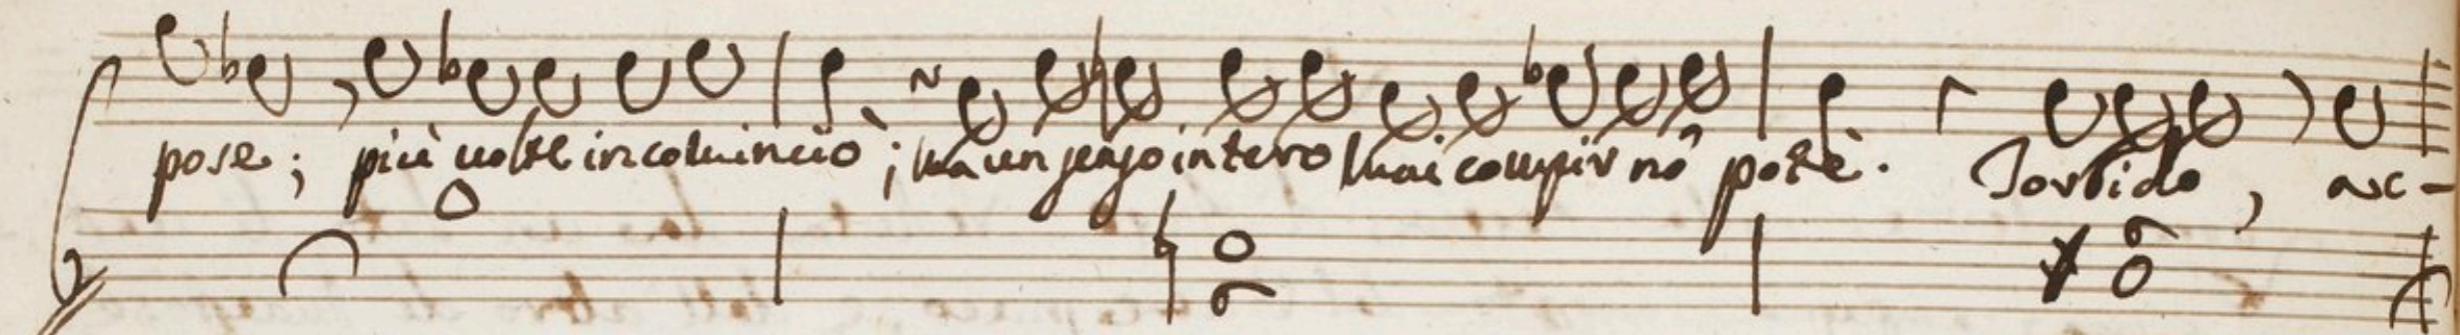 pose; più uolte incominciò; ma un senso intero mai compir nõ potè. Torbido, ac-